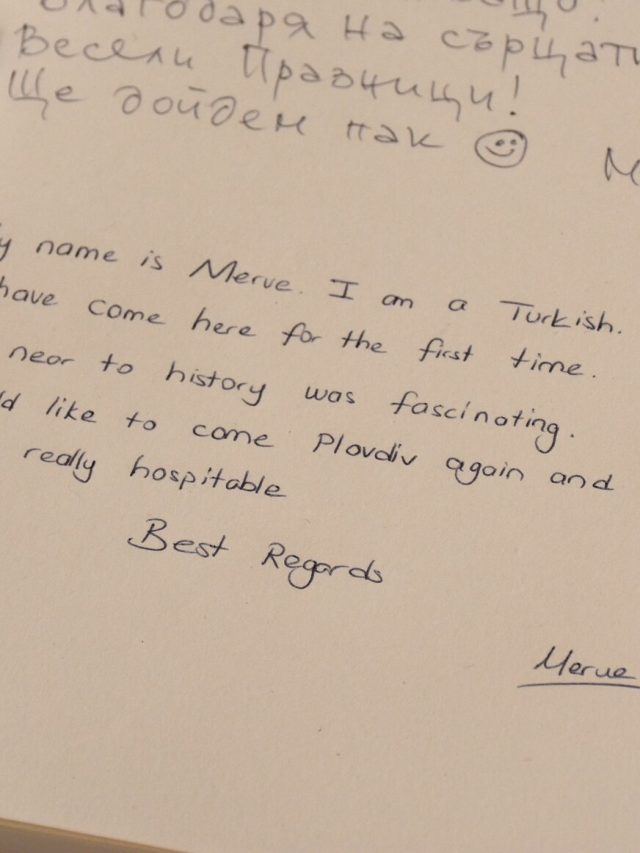 Благодаря на сърцати
Весели Празници!
Ще дойдем пак
y name is Merve. I am a Turkish.
have come here for the first time.
near to history was fascinating.
ld like to come Plovdiv again and
really hospitable
Best Regards
Merve